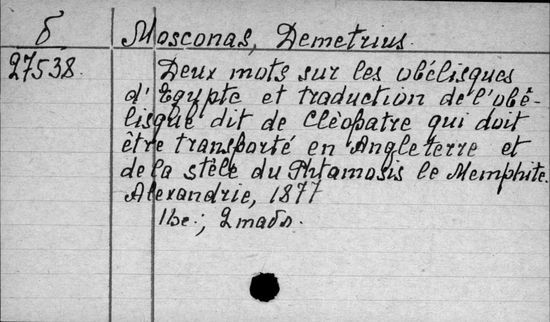 б Mosconas, Demetrius.
27538. Deux mots sur les obélisques
d'Egypte et traduction de l'obé-
lisque dit de Clèopatre qui doit
être transporté en Angleterre et
de la stèle du Phtamosis le Memphite.
Alexandrie, 1877
16e.; 2 табл.